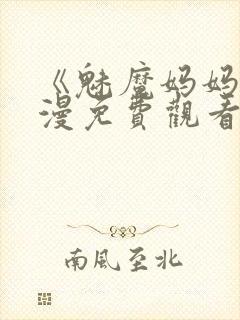 《魅魔妈妈
漫免費觀看
南風至北